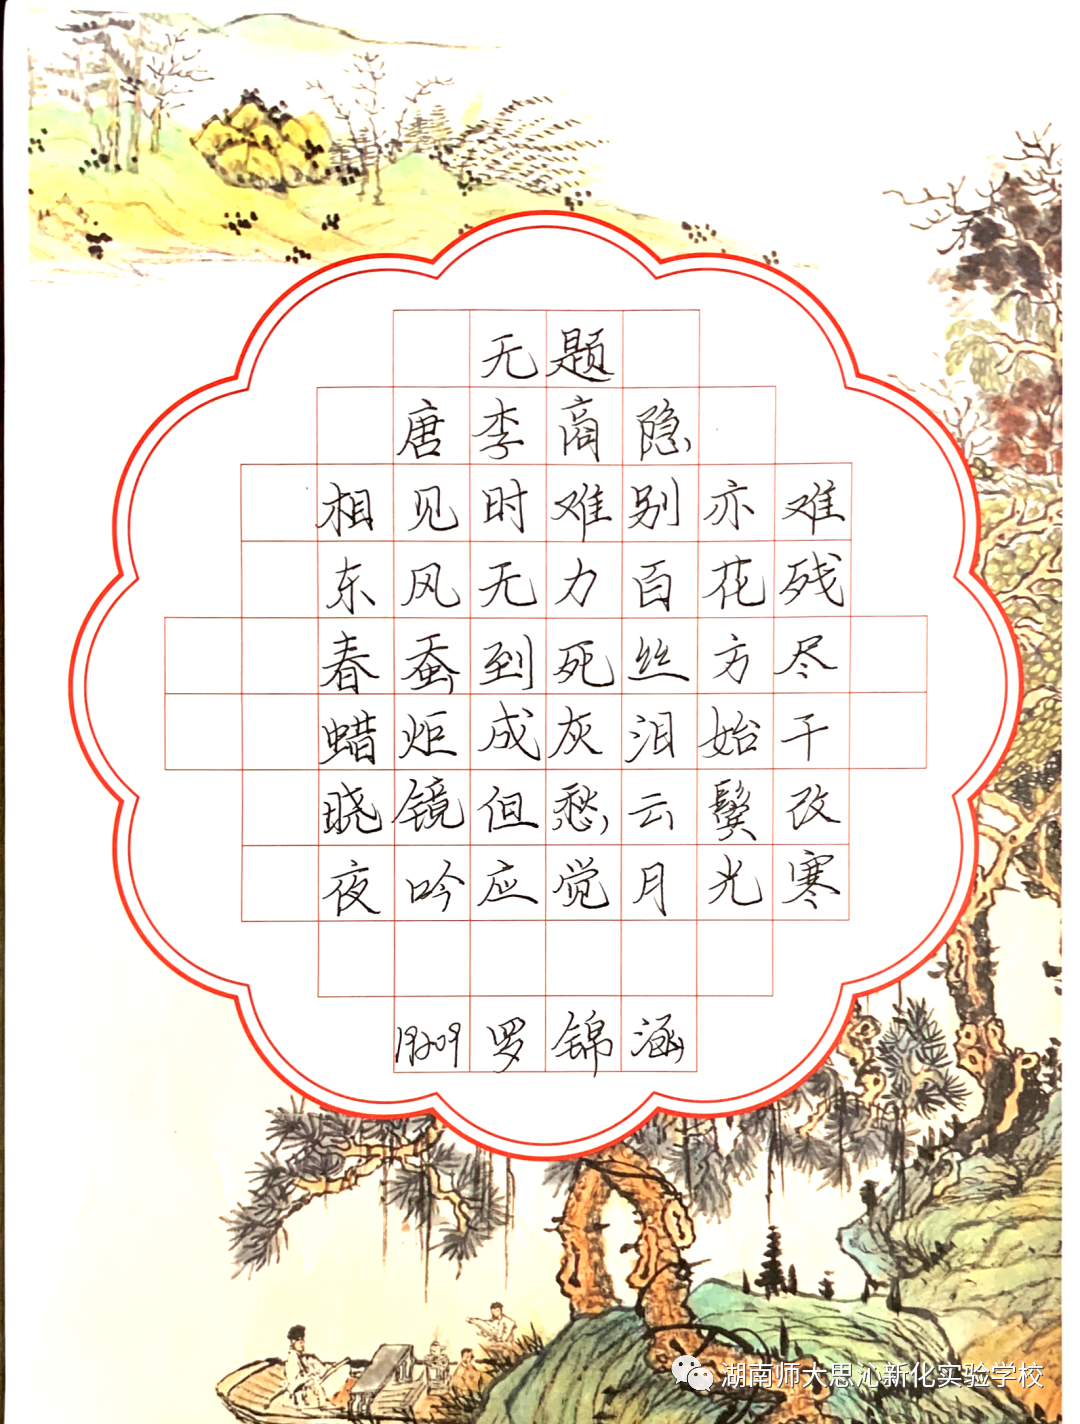 无题
唐李商隐
相见时难别亦难
东风无力百花残
春蚕到死丝方尽
蜡炬成灰泪始干
晓镜但愁云鬓改
夜吟应觉月光寒
19209罗锦涵
湖南师大思沁新化实验学校